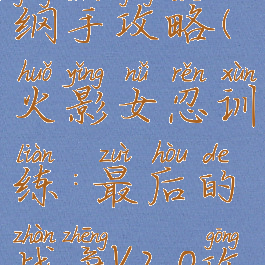 纲手攻略(
huǒ yǐng nǚ rěn xùn
火影女忍训
liàn : zuì hòu de
练:最后的
zhàn zhēng gōng
战争V2.0攻